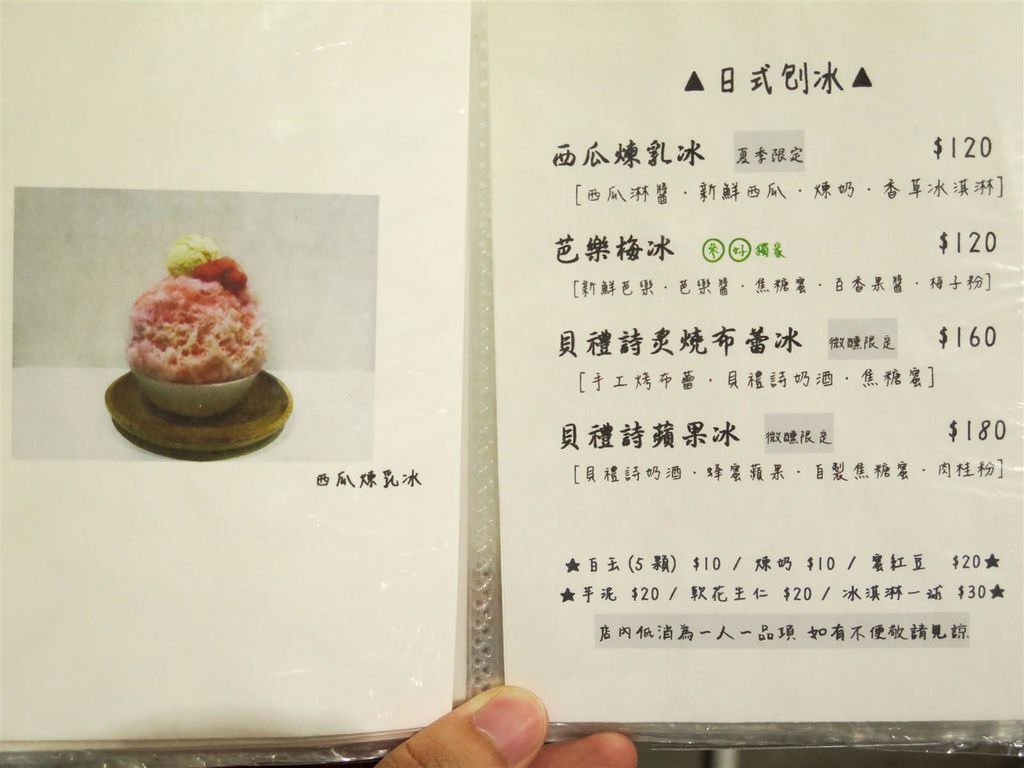 西瓜煉乳冰
▲日式刨冰▲
西瓜煉乳冰 夏季限定 $120
[西瓜淋醬·新鮮西瓜·煉奶·香草冰淇淋]
芭樂梅冰 禾好獨家 $120
[新鮮芭樂·芭樂醬·焦糖蜜·百香果醬·梅子粉]
貝禮詩炙燒布蕾冰 微醺限定 $160
[手工烤布蕾·貝禮詩奶酒·焦糖蜜]
貝禮詩蘋果冰 微醺限定 $180
[貝禮詩奶酒·蜂蜜蘋果·自製焦糖蜜·肉桂粉]
★白玉(5顆) $10 / 煉奶 $10 / 蜜紅豆 $20★
★芋泥 $20 / 軟花生仁 $20 / 冰淇淋一球 $30★
店內低消為一人一品項 如有不便敬請見諒